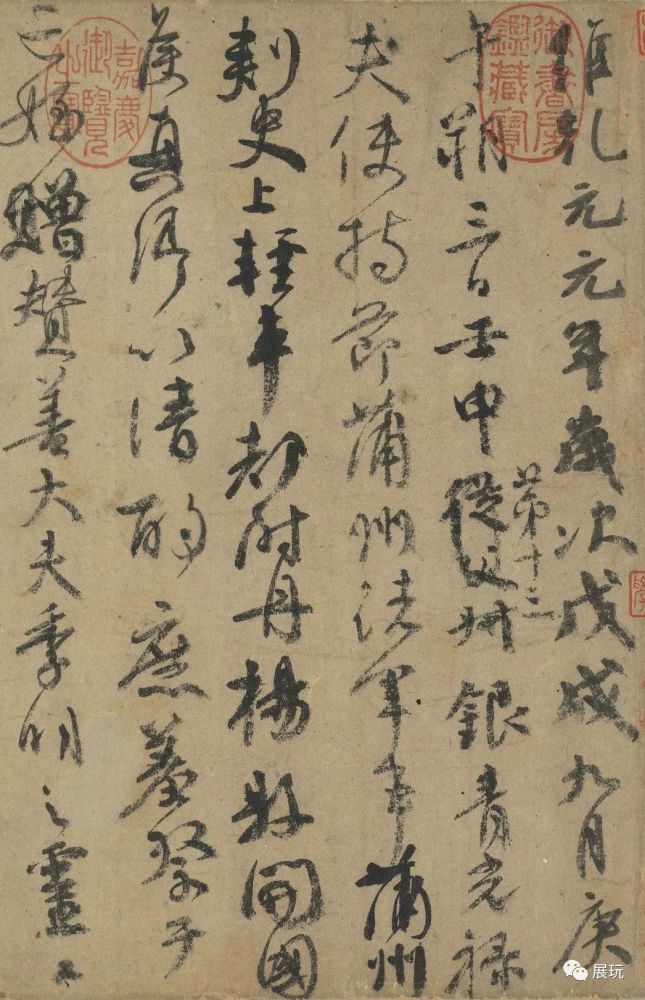 維乾元元年歲次戊戌九月庚
午朔三日壬申第十三從父叔銀青光祿
夫使持節蒲州諸軍事蒲州
刺史上輕車都尉丹楊縣開國
侯真卿以清酌庶羞祭于
亡姪贈贊善大夫季明之靈曰
御書房鑑藏寶
嘉慶御覽之寶
展玩